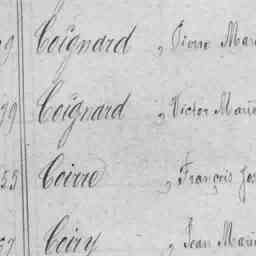 9 Coignard , Pierre Marie
99 Coignard , Victor Marie
55 Coirre , François Jos
57 Coiry , Jean Marie